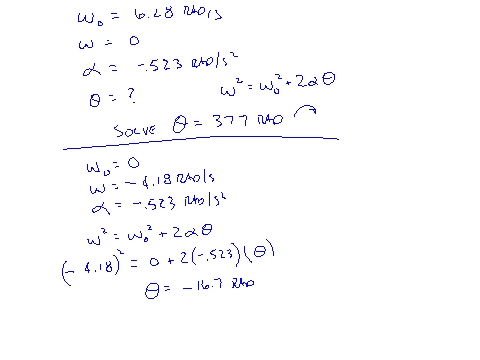 ω₀ = 6.28 RAD/s
ω = 0
α = -.523 RAD/s²
θ = ?
ω² = ω₀² + 2αθ
SOLVE θ = 37.7 RAD
ω₀ = 0
ω = -4.18 RAD/s
α = -.523 RAD/s²
ω² = ω₀² + 2αθ
(-4.18)² = 0 + 2(-.523)(θ)
θ = -16.7 RAD